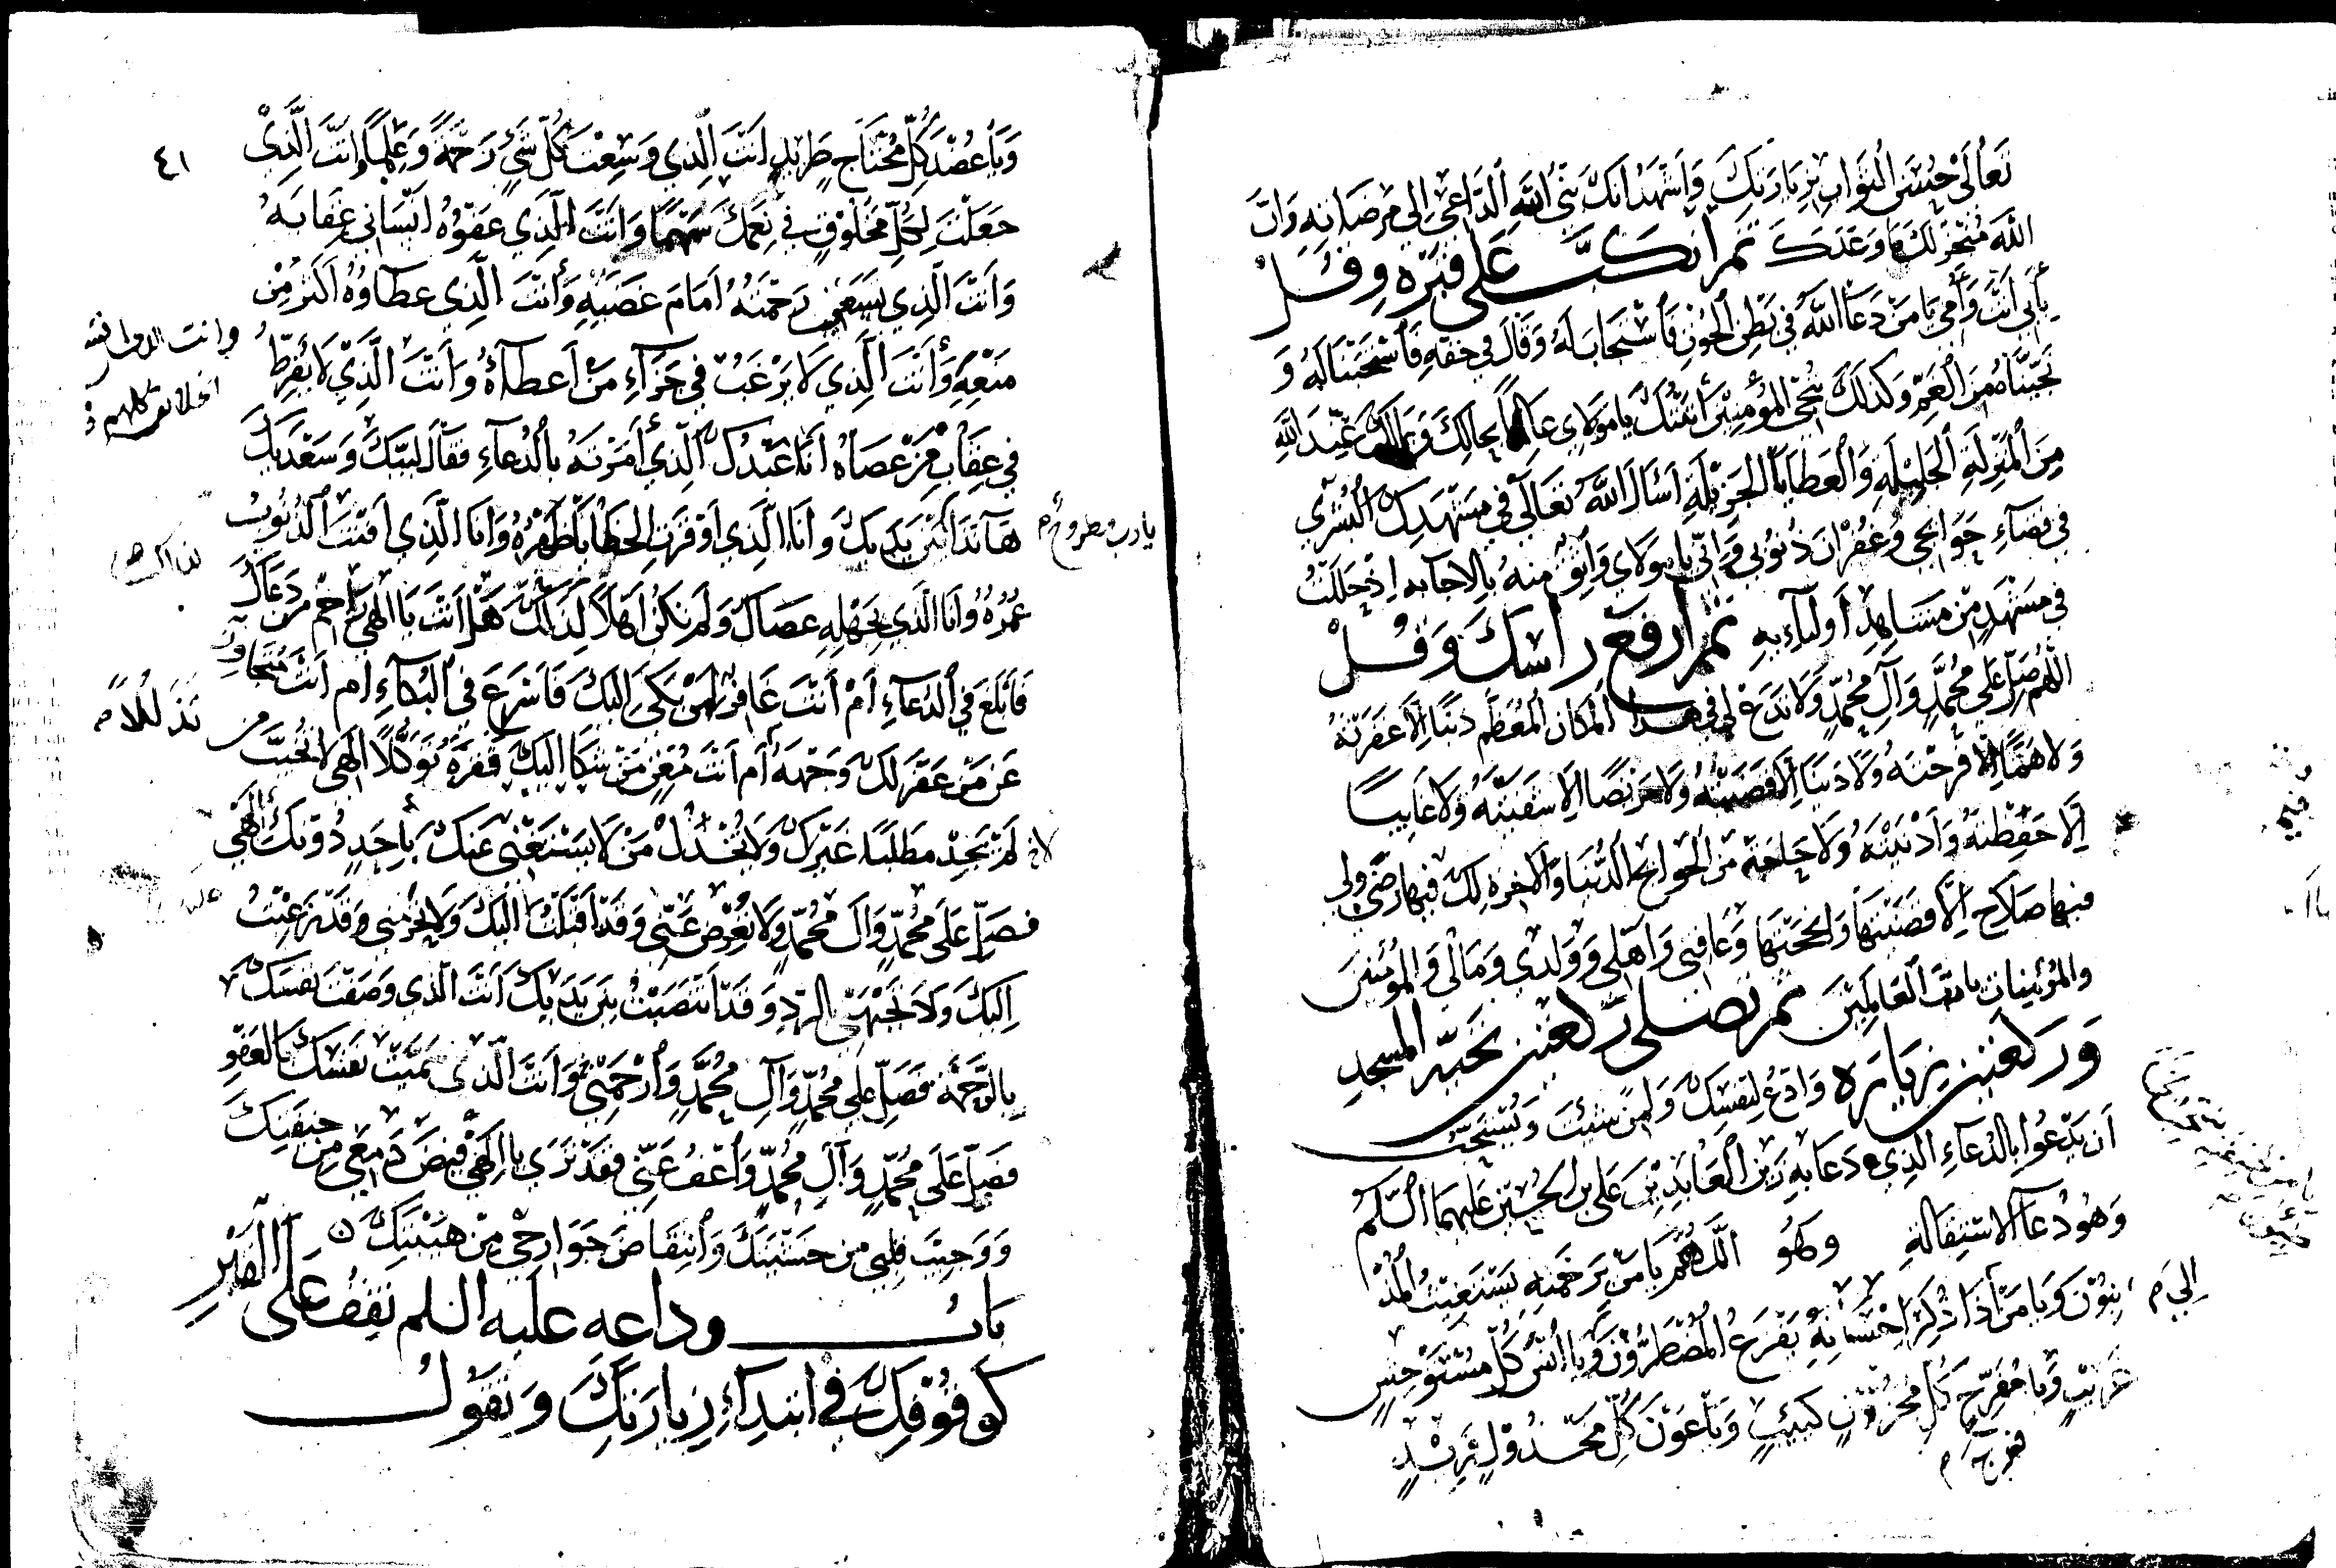 تَعَالَى حُسْنَ الثَّوَابِ بِزِيَارَتِكَ وَاَشْهَدُ اَنَّكَ نَبِيُّ اللَّهِ الدَّاعِي اِلَى مَرْضَاتِهِ وَاَنَّ
اللَّهَ مُنْجِزٌ لَكَ مَا وَعَدَكَ ثم انكب على قبره وقل
بِأَبِي أَنْتَ وَأُمِّي يَا مَنْ دَعَا اللَّهَ فِي بَطْنِ الْحُوْتِ فَاسْتَجَابَ لَهُ وَقَالَ فِي حَقِّهِ فَاسْتَجَبْنَا لَهُ وَ
نَجَّيْنَاهُ مِنَ الْغَمِّ وَكَذَلِكَ نُنْجِي الْمُؤْمِنِيْنَ أَتَيْتُكَ يَا مَوْلَايَ عَالِمًا بِحَالِكَ وَبِمَا لَكَ عِنْدَ اللَّهِ
مِنَ الْمَنْزِلَةِ الْجَلِيْلَةِ وَالْعَطَايَا الْجَزِيْلَةِ اَسْأَلُ اللَّهَ تَعَالَى فِي مَشْهَدِكَ الْبُشْرَى
فِي قَضَاءِ حَوَائِجِي وَغُفْرَانَ ذُنُوبِي وَإِنِّي يَا مَوْلَايَ وَاثِقٌ مِنْهُ بِالاِجَابَةِ اِذْ حَلَلْتُ
فِي مَشْهَدٍ مِنْ مَشَاهِدِ أَوْلِيَاءِهِ ثم ارفع راسك وقل
اللَّهُمَّ صَلِّ عَلَى مُحَمَّدٍ وَآلِ مُحَمَّدٍ وَلَا تَدَعْ لِي فِي هَذَا الْمَكَانِ الْمُعَظَّمِ ذَنْبًا اِلَّا غَفَرْتَهُ
وَلَا هَمًّا اِلَّا فَرَّجْتَهُ وَلَا دَيْنًا اِلَّا قَضَيْتَهُ وَلَا مَرِيْضًا اِلَّا شَفَيْتَهُ وَلَا غَايِبًا
اِلَّا حَفِظْتَهُ وَاَدْنَيْتَهُ وَلَا حَاجَةً مِنَ الْحَوَائِجِ الدُّنْيَا وَالْآخِرَةِ لَكَ فِيهَا رِضًى وَلِي
فِيهَا صَلَاحٌ اِلَّا قَضَيْتَهَا وَانْجَحْتَهَا وَعَافِنِي وَاَهْلِي وَوَلَدِي وَمَالِي وَالْمُؤْمِنِيْنَ
وَالْمُؤْمِنَاتِ يَا رَبَّ الْعَالَمِيْنَ ثم تصلى ركعتين تحية المسجد
وَركعتين زيارة وَادْعُ لِنَفْسِكَ وَلِمَنْ شِئْتَ وَيُسْتَحَبُّ
أَنْ يَدْعُوا بِالدُّعَاءِ الَّذِي دَعَا بِهِ زَيْنُ الْعَابِدِيْنَ عَلِي بْنِ الْحُسَيْنِ عَلَيْهِمَا السَّلَمُ
وَهُوَ دُعَآ الاسْتِقَالَةِ وَهُوَ اللَّهُمَّ يَا مَنْ بِرَحْمَتِهِ يَسْتَغِيْثُ الْمُذْ
نِبُوْنَ وَيَا مَنْ إِذَا ذُكِرَ اِحْسَانِهُ يَفْزَعُ الْمُضْطَرُّوْنَ وَيَا أُنْسَ كُلِّ مُسْتَوْحِشٍ
اِلَى م
غَرِيْبٍ وَيَا مُفَرِّجَ كُلِّ مَحْزُوْنٍ كَئِيْبٍ وَيَا عَوْنَ كُلِّ مَخْذُوْلٍ فَرِيْدٍ
فرج م
٤١
وَيَا عَضُدَ كُلِّ مُحْتَاجٍ طَرِيْدٍ اَنْتَ الَّذِي وَسِعْتَ كُلَّ شَيْءٍ رَحْمَةً وَعِلْمًا وَاَنْتَ الَّذِيْ
جَعَلْتَ لِكُلِّ مَخْلُوْقٍ فِي نِعَمِكَ سَهْمًا وَاَنْتَ الَّذِي عَفْوُهُ اَنْسَانِي عِقَابَهُ
وَاَنْتَ الَّذِي تَسْعَى رَحْمَتُهُ اَمَامَ غَضَبِهِ وَأَنْتَ الَّذِي عَطَاؤُهُ اَكْثَرُ مِنْ
مَنْعِهِ وَأَنْتَ الَّذِي لَا يَرْغَبُ فِي جَزَآءِ مَنْ اَعْطَاهُ وَأَنْتَ الَّذِيْ لَا يُفْرِطُ
فِي عِقَابِ مَنْ عَصَاهُ اَنَا عَبْدُكَ الَّذِي أَمَرْتَهُ بِالدُّعَاءِ فَقَالَ لَبَّيْكَ وَسَعْدَيْكَ
يا رب مطروح م
هَآ نَذَا بَيْنَ يَدَيْكَ وَأَنَا الَّذِي اَوْقَرَتِ الْخَطَايَا ظَهْرُهُ وَأَنَا الَّذِي اَفْنَتِ الذُّنُوبُ
عُمُرُهُ وَأَنَا الَّذِي بِجَهْلِهِ عَصَاكَ وَلَمْ تَكُنْ اَهْلًا لِذَلِكَ هَلْ أَنْتَ يَا اِلَهِي رَاحِمٌ مَنْ دَعَاكَ
فَأَبْلَغَ فِي الدُّعَآءِ أَمْ أَنْتَ غَافِرٌ لِمَنْ بَكَى اِلَيْكَ فَاَسْرَعَ فِي الْبُكَآءِ اَمْ اَنْتَ مُتَجَاوِزٌ
تَذَلُّلًا م
عَنْ مَنْ عَفَّرَ لَكَ وَجْهَهُ أَمْ اَنْتَ مُغْنٍ مَنْ شَكَا اِلَيْكَ فَقْرَهُ تَوَكُّلًا اِلَهِي لَا تُخَيِّبْ مَنْ
لَمْ يَجِدْ مَطْلَبًا غَيْرَكَ وَلَا تَخْذُلْ مَنْ لَا يَسْتَغْنِي عَنْكَ بِأَحَدٍ دُوْنَكَ اِلَهِي
فَصَلِّ عَلَى مُحَمَّدٍ وَآلِ مُحَمَّدٍ وَلَا تُعْرِضْ عَنِّي وَقَدْ اَقْبَلْتُ اِلَيْكَ وَلَا تَحْرِمْنِي وَقَدْ رَغِبْتُ
اِلَيْكَ وَلَا تَجْبَهْنِي بِالرَّدِّ وَقَدْ اَنْتَصَبْتُ بَيْنَ يَدَيْكَ اَنْتَ الَّذِي وَصَفْتَ نَفْسَكَ
بِالرَّحْمَةِ فَصَلِّ عَلَى مُحَمَّدٍ وَآلِ مُحَمَّدٍ وَارْحَمْنِي وَاَنْتَ الَّذِي سَمَّيْتَ نَفْسَكَ بِالْعَفْوِ
فَصَلِّ عَلَى مُحَمَّدٍ وَآلِ مُحَمَّدٍ وَاعْفُ عَنِّي فَقَدْ تَرَى يَا اِلَهِي فَيْضَ دَمْعِي مِنْ خِيفَتِكَ
وَوَجِيْبَ قَلْبِي مِنْ خَشْيَتِكَ وَاَنْتِقَاضَ جَوَارِحِي مِنْ هَيْبَتِكَ
باب وداعه عليه السلم تقف على القبر
كوقوفك في ابتداء زيارتك وتقول